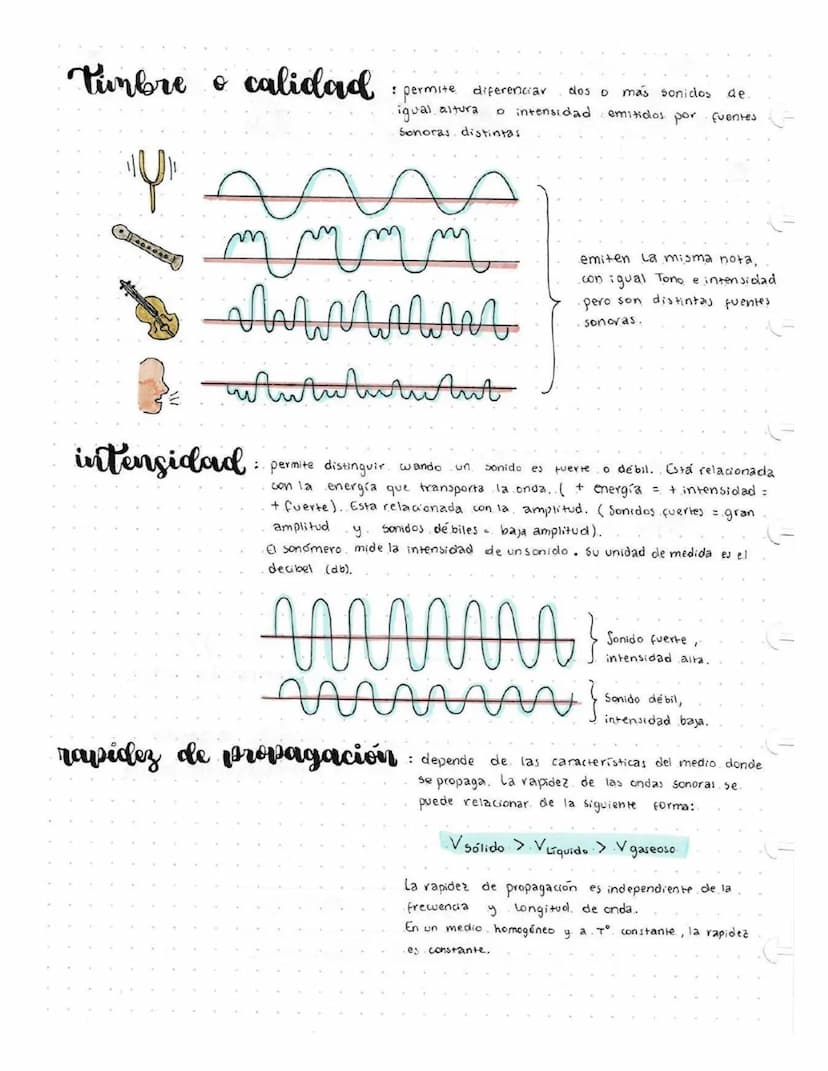 Timbre o calidad : permite diferenciar dos o más sonidos de
igual altura o intensidad emitidos por fuentes
sonoras distintas
emiten la misma nota,
con igual Tono e intensidad
pero son distintas fuentes
sonoras.
intensidad : permite distinguir cuando un sonido es fuerte o débil. Está relacionada
con la energía que transporta la onda. ( + energía = + intensidad =
+ fuerte). Esta relacionada con la amplitud. ( Sonidos fuertes = gran
amplitud y sonidos débiles = baja amplitud).
El sonómero mide la intensidad de un sonido. Su unidad de medida es el
decibel (db).
Sonido fuerte,
intensidad alta.
Sonido débil,
intensidad baja.
rapidez de propagación : depende de las características del medio donde
se propaga. La rapidez de las ondas sonoras se
puede relacionar de la siguiente forma:
V sólido > V Líquido > V gaseoso
La rapidez de propagación es independiente de la
frecuencia y longitud de onda.
En un medio homogéneo y a T° constante, la rapidez
es constante.